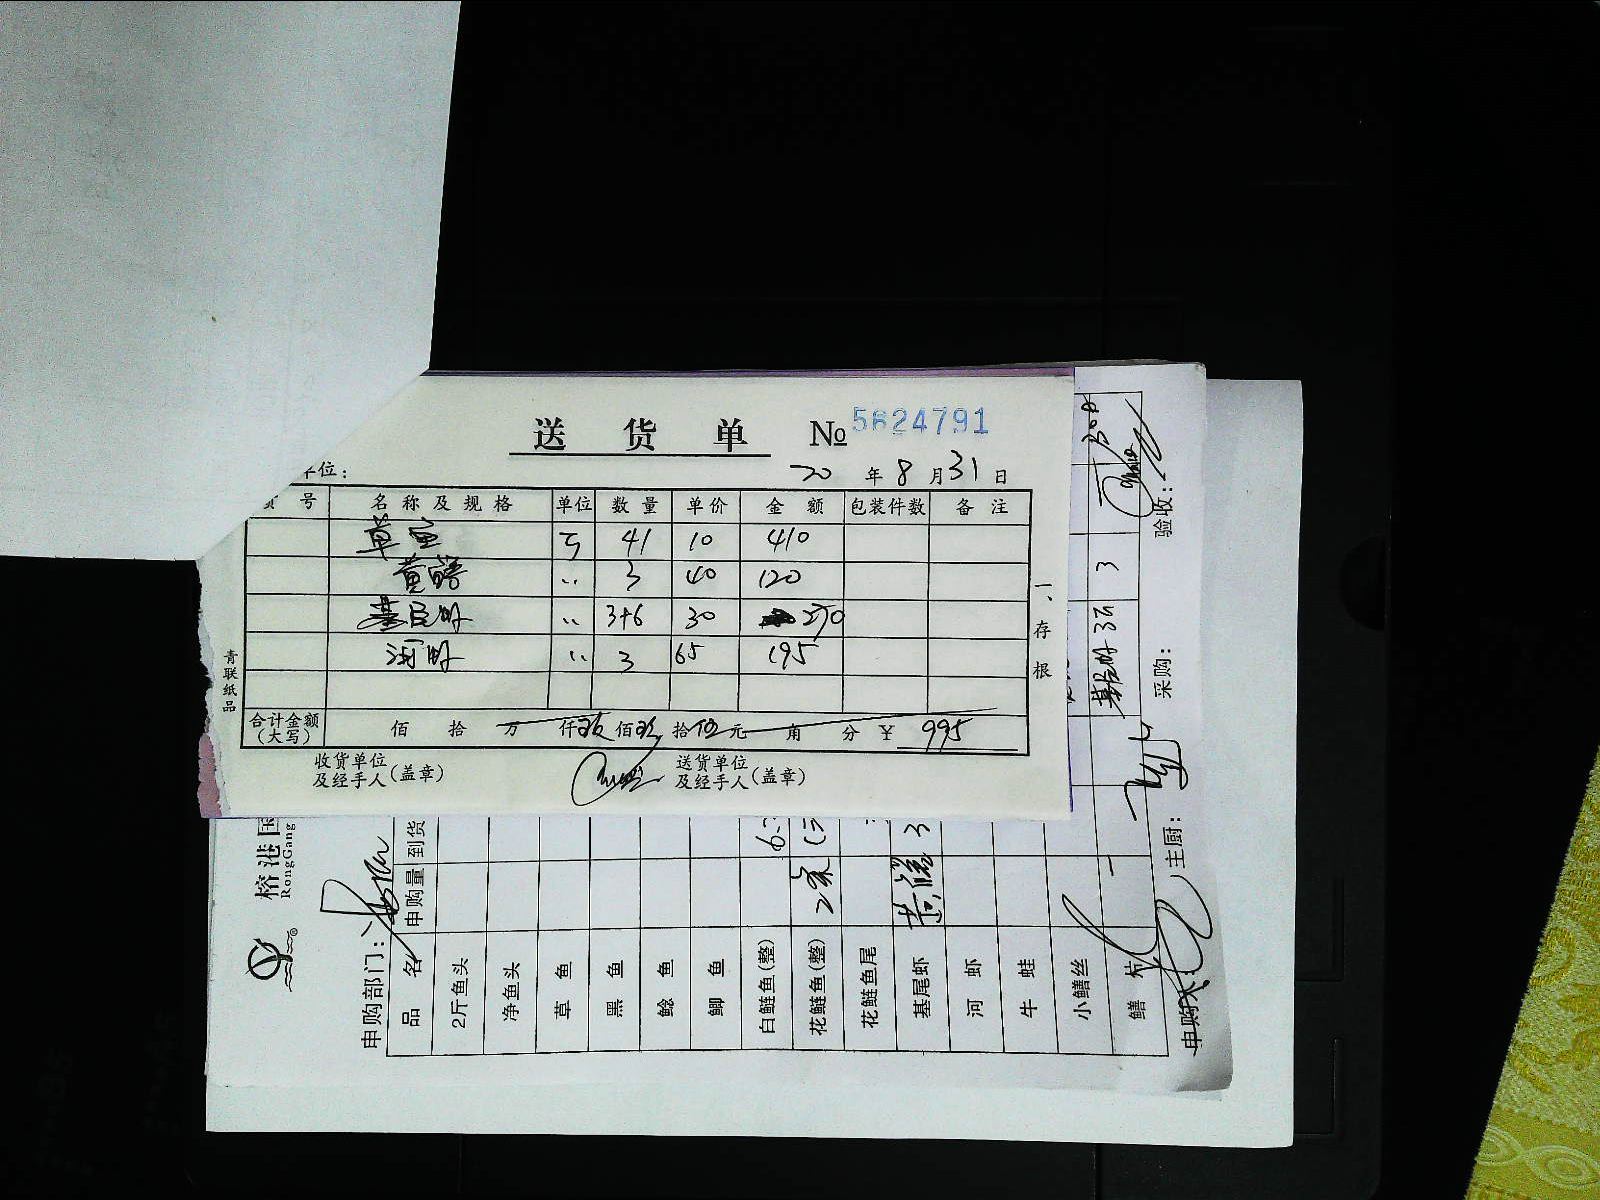 送 货 单 № 5624791
单位： 20 年 8 月 31 日
号 名 称 及 规 格 单位 数 量 单价 金 额 包装件数 备 注
草鱼 斤 41 10 410
黄鳝 〃 3 40 120
基围虾 〃 3+6 30 270
河虾 〃 3 65 195
合计金额（大写） 佰 拾 万 仟 玖 佰 玖 拾 伍 元 角 分 ￥ 995
收货单位及经手人（盖章） 送货单位及经手人（盖章）
一、存根
青联纸品
榕港国
RongGang
申购部门：
品 名 申购量 到货
2斤鱼头
净鱼头
草 鱼
黑 鱼
鲶 鱼
鲫 鱼
白鲢鱼(整)
花鲢鱼(整) 2条
花鲢鱼尾
基尾虾 黄鳝 3
河 虾
牛 蛙
小鳝丝
鳝
基尾虾 3斤 3
申购 主厨： 采购： 验收：